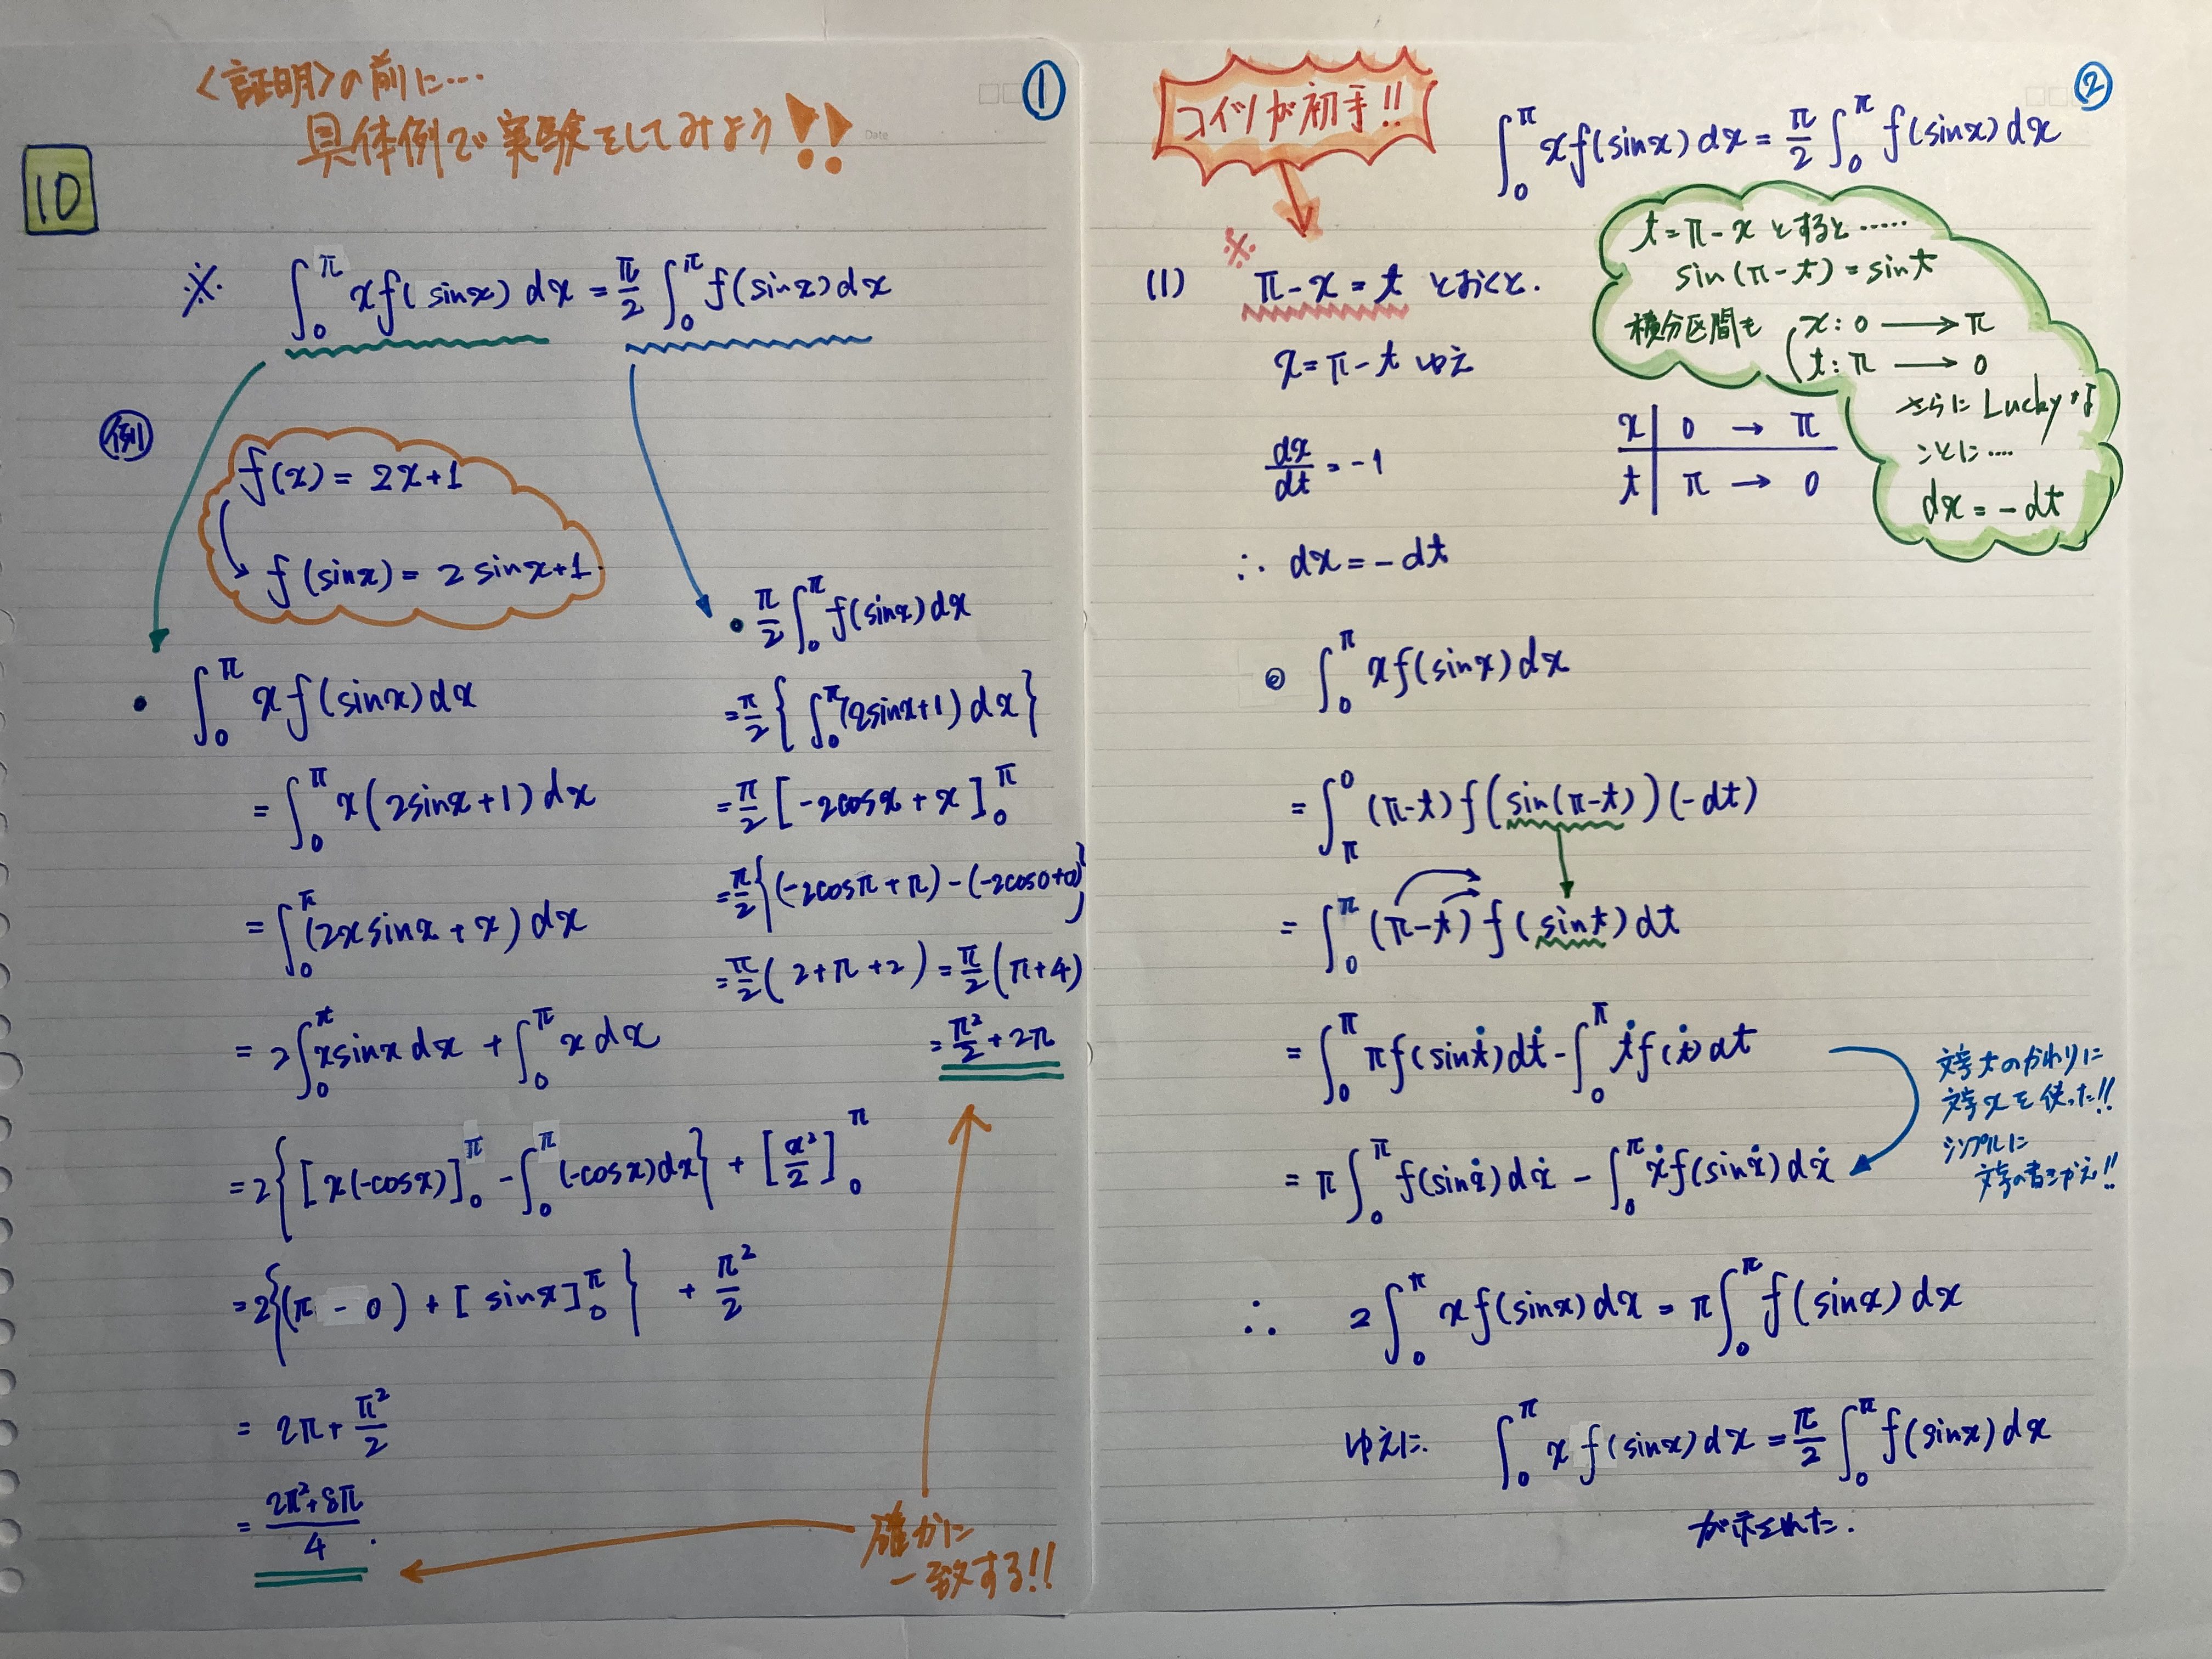 <証明>の前に…
具体例で実験をしてみよう!!
①
Date
10
※ ∫₀^π xf(sinx)dx = π/2 ∫₀^π f(sinx)dx
例
f(x) = 2x+1
f(sinx) = 2sinx+1
・ ∫₀^π xf(sinx)dx
= ∫₀^π x(2sinx+1)dx
= ∫₀^π (2xsinx+x)dx
= 2∫₀^π xsinxdx + ∫₀^π xdx
= 2{[x(-cosx)]₀^π - ∫₀^π (-cosx)dx} + [x²/2]₀^π
= 2{(π - 0) + [sinx]₀^π} + π²/2
= 2π + π²/2
= (2π²+8π)/4 .
・ π/2 ∫₀^π f(sinx)dx
= π/2 {∫₀^π (2sinx+1)dx}
= π/2 [-2cosx + x]₀^π
= π/2 {(-2cosπ+π)-(-2cos0+0)}
= π/2 (2+π+2) = π/2 (π+4)
= π²/2 + 2π
確かに
一致する!!
②
コイツが初手!!
∫₀^π xf(sinx)dx = π/2 ∫₀^π f(sinx)dx
t=π-x とすると……
sin(π-t)=sint
積分区間も x:0 → π
t:π → 0
さらに Luckyな
ことに….
dx = -dt
※
(1) π-x=t とおくと.
x=π-t ゆえ
dx/dt = -1
x | 0 → π
t | π → 0
∴ dx = -dt
・ ∫₀^π xf(sinx)dx
= ∫_π^0 (π-t)f(sin(π-t))(-dt)
= ∫₀^π (π-t)f(sint)dt
= ∫₀^π πf(sint)dt - ∫₀^π tf(t)dt
= π∫₀^π f(sinx)dx - ∫₀^π xf(sinx)dx
文字tのかわりに
文字xを使った!!
シンプルに
文字の書きかえ!!
∴ 2∫₀^π xf(sinx)dx = π∫₀^π f(sinx)dx
ゆえに. ∫₀^π xf(sinx)dx = π/2 ∫₀^π f(sinx)dx
が示された.